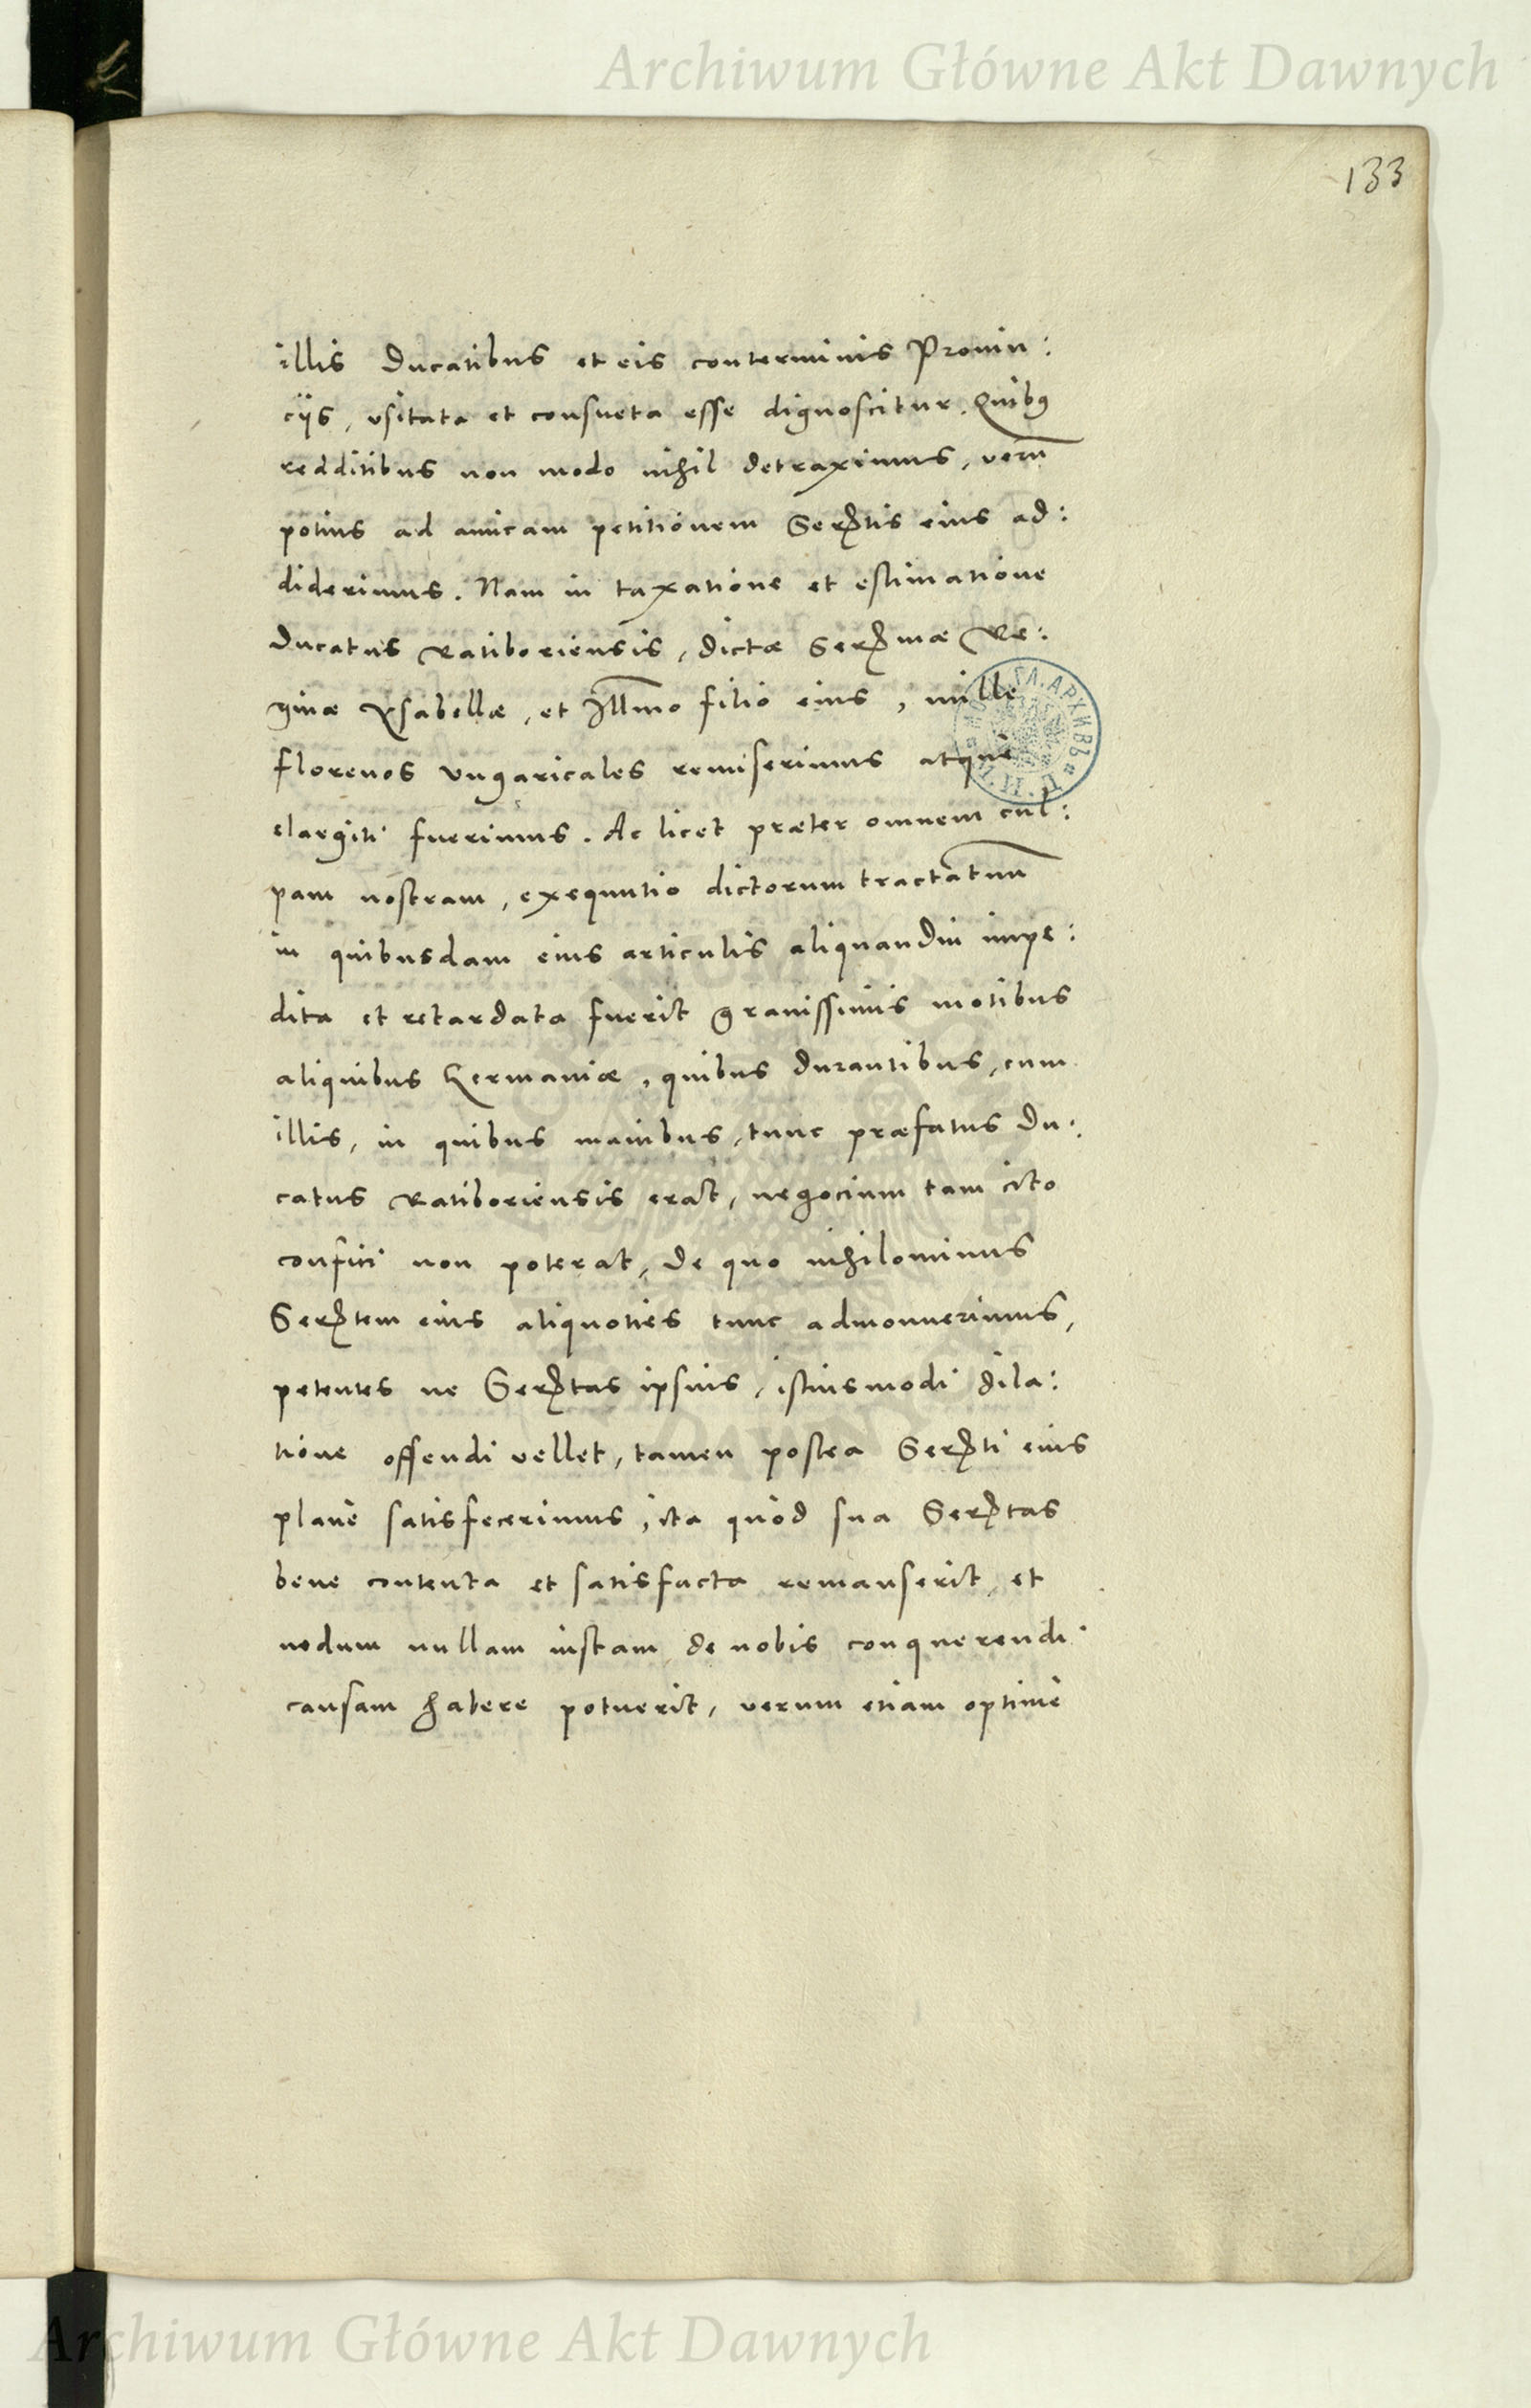 Archiwum Główne Akt Dawnych
133
illis Ducatibus et eis conterminis Prouin:
cijs, vsitata et consueta esse dignoscitur. Quibꝯ
redditibus non modo nihil detraximus, verū
potius ad amicam petitionem Serᵗⁱˢ eius ad:
diderimus. Nam in taxatione et estimatione
Ducatus Ratiboriensis, dictæ Serᵐæ Re:
ginæ Ysabellæ, et Illmo filio eius, mille
florenos vngaricales remiserimus atque
elargiti fuerimus. Ac licet præter omnem cul:
pam nostram, exequutio dictorum tractatuū
in quibusdam eius articulis aliquandiu impe:
dita et retardata fuerit grauissimis motibus
aliquibus Germaniæ, quibus durantibus, cum
illis, in quibus manibus, tunc præfatus Du:
catus Ratiboriensis erat, negocium tam cito
confici non poterat, de quo nihilominus
Serᵗem eius aliquoties tunc admonuerimus,
petentes ne Serᵗas ipsius, istiusmodi dila:
tione offendi vellet, tamen postea Serᵗi eius
planè satisfecerimus, ita quòd sua Serᵗas
bene contenta et satisfacta remanserit, et
nedum nullam iustam de nobis conquerendi
causam habere potuerit, verum etiam optimè
Archiwum Główne Akt Dawnych